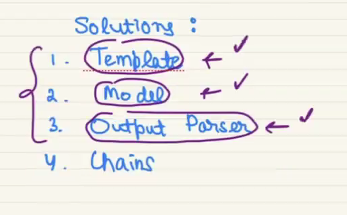 Solutions :
1. Template
2. Model
3. Output Parser
4. Chains